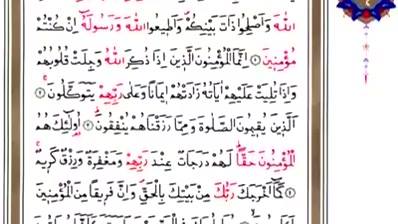 اللّٰهَ وَاَصْلِحُوا ذَاتَ بَيْنِكُمْ وَاَطٖيعُوا اللّٰهَ وَرَسُولَهُٓ اِنْ كُنْتُمْ
مُؤْمِنٖينَ ١ اِنَّمَا الْمُؤْمِنُونَ الَّذٖينَ اِذَا ذُكِرَ اللّٰهُ وَجِلَتْ قُلُوبُهُمْ
وَاِذَا تُلِيَتْ عَلَيْهِمْ اٰيَاتُهُ زَادَتْهُمْ اٖيمَانًا وَعَلٰى رَبِّهِمْ يَتَوَكَّلُونَ ٢
اَلَّذٖينَ يُقٖيمُونَ الصَّلٰوةَ وَمِمَّا رَزَقْنَاهُمْ يُنْفِقُونَ ٣ اُولٰٓئِكَ هُمُ
الْمُؤْمِنُونَ حَقًّا لَهُمْ دَرَجَاتٌ عِنْدَ رَبِّهِمْ وَمَغْفِرَةٌ وَرِزْقٌ كَرٖيمٌ
٤ كَمَٓا اَخْرَجَكَ رَبُّكَ مِنْ بَيْتِكَ بِالْحَقِّ وَاِنَّ فَرٖيقًا مِنَ الْمُؤْمِنٖينَ